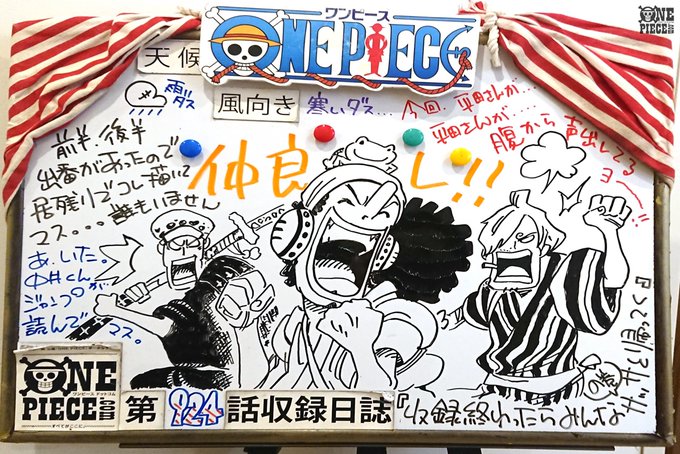 ONE PIECE.com
ワンピース
ONE PIECE
天候
雨ダス
風向き
寒いダス…
今回、平田さんが…
平田さんが….
腹から声出してる
ヨ〜!!
前半、後半
出番があったので
居残りでコレ描いて
マス。。。誰もいません
あ、いた。
中井くん
ジャンプが
読んでマス。
仲良
し!!
ONE
PIECE.com
ワンピース ドットコム
すべてがここに!
第924話収録日誌
『収録終わったらみんな
の巻